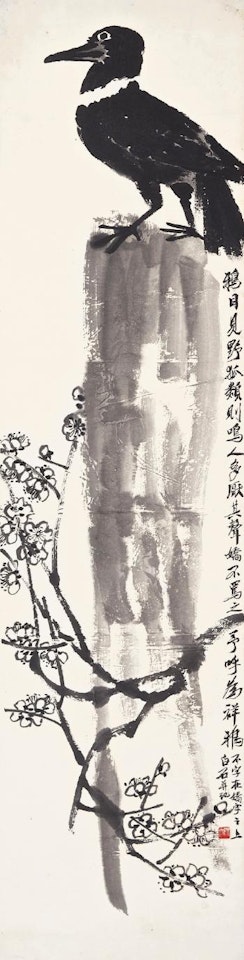 鴉目見野狐類則鳴人多厭其聲嬌不罵之予呼爲祥鴉
不字在嬌字之上
白石并記